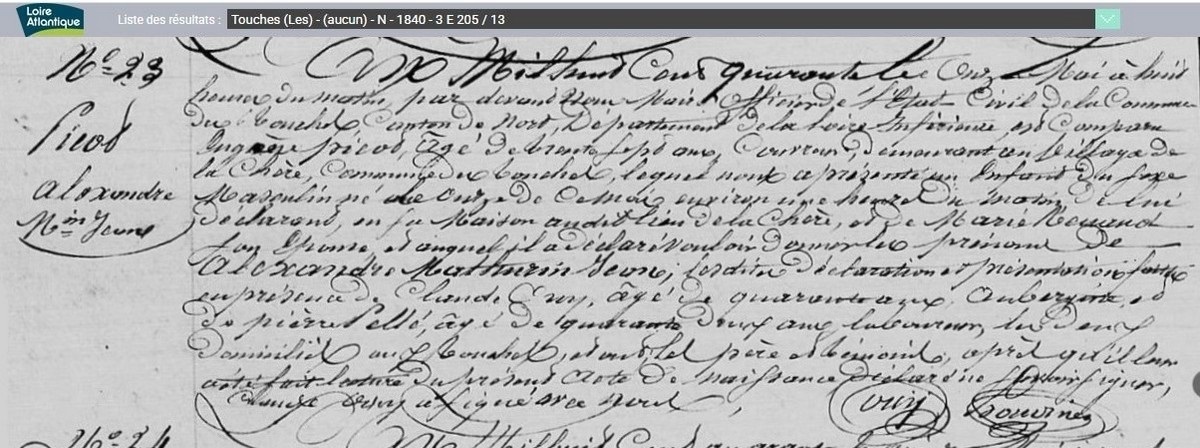 Loire
Atlantique
Liste des résultats : Touches (Les) - (aucun) - N - 1840 - 3 E 205 / 13
Nº 23
Picod
Alexandre
Min Jean
Mil huit Cent quarante le Onze Mai à huit
heures du matin, par devant Nous Maire Officier de l'Etat Civil de la Commune
du Touches Canton de Nort, Département de la Loire Inférieure, est Comparu
picod, âgé de trente sept ans, Couvreur, demeurant au Village de
la Chère, Commune du Touches, lequel nous a présenté un Enfant du Sexe
Masculin né le Onze de Ce Mois environ une heure du matin de lui
déclarant, en sa Maison audit lieu de la Chère, et de Marie
son Epouse, et auquel il a déclaré Vouloir donner les prénoms De
Alexandre Mathurin Jean; lesdites déclaration et présentation faites
en présence de Claude Cruy, âgé de quarante ans, Aubergiste, et
de pierre Pellé, âgé de quarante deux ans, laboureur, les deux
domiciliés aux Touches, et ont les père et témoins, après qu'il leur
a été fait lecture du présent Acte de naissance déclaré ne Savoir signer,
Cruy a signé avec Nous
Nº 24
Mil huit Cent quarante